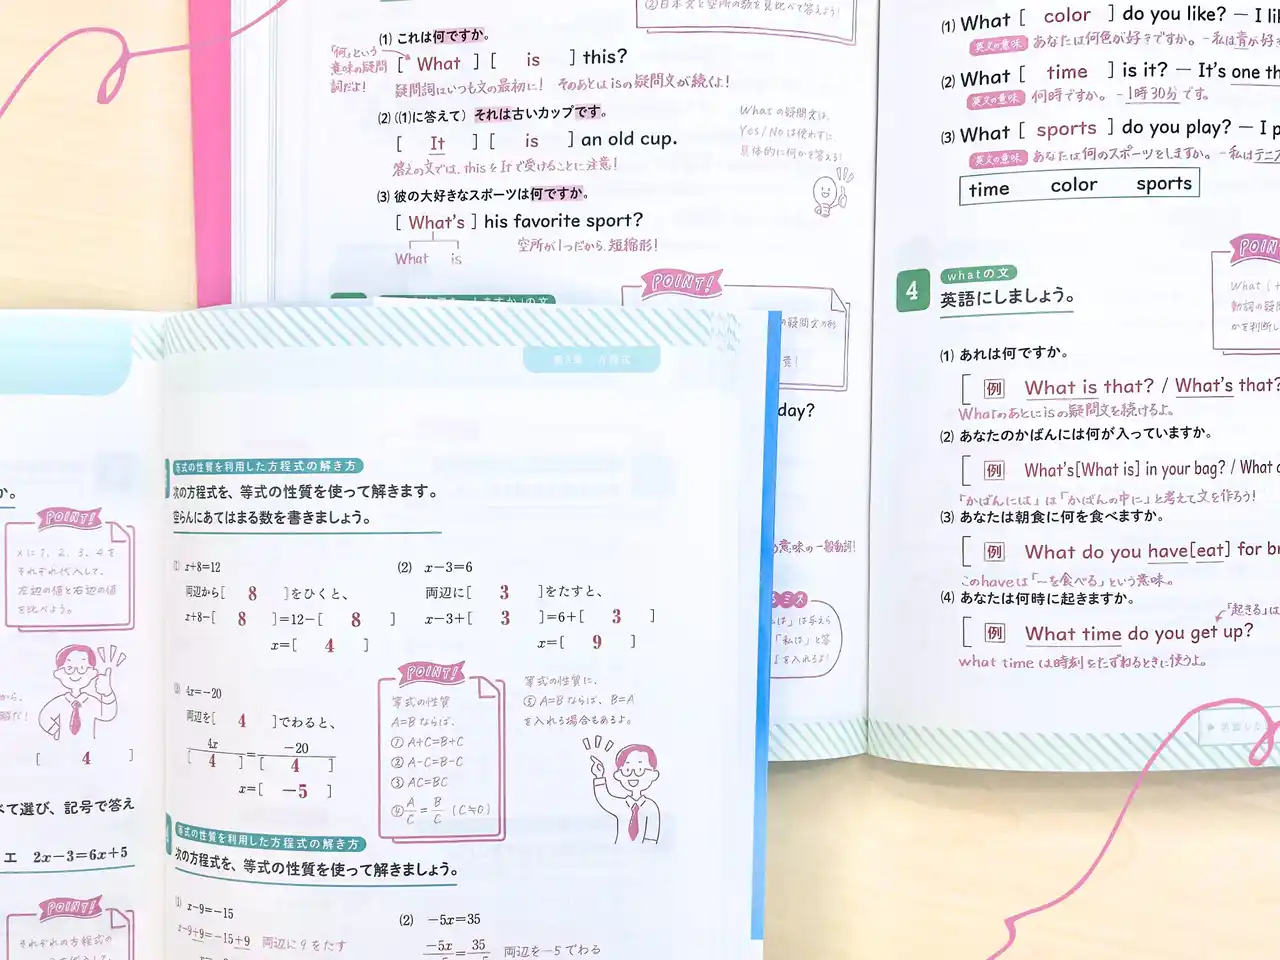 ②日本文と空所の数を見比べて答えよう!
(1) これは何ですか。
「何」という
意味の疑問
詞だよ!
[ What ] [ is ] this?
疑問詞はいつも文の最初に! そのあとは is の疑問文が続くよ!
(2) ((1)に答えて) それは古いカップです。
[ It ] [ is ] an old cup.
答えの文では、thisをItで受けることに注意!
What の疑問文は、
Yes / No は使わずに、
具体的に何かを答える!
(3) 彼の大好きなスポーツは何ですか。
[ What's ] his favorite sport?
What is
空所が1つだから、短縮形!
POINT!
の疑問文の形
day?
意味の一般動詞!
ミス
(1) What [ color ] do you like? — I li
英文の意味 あなたは何色が好きですか。-私は青が好き
(2) What [ time ] is it? — It's one th
英文の意味 何時ですか。-1時30分です。
(3) What [ sports ] do you play? — I p
英文の意味 あなたは何のスポーツをしますか。-私はテニス
time color sports
POINT!
What (+
動詞の疑問
かを判断し
4 whatの文
英語にしましょう。
(1) あれは何ですか。
[ 例 What is that? / What's that?
Whatのあとにisの疑問文を続けるよ。
(2) あなたのかばんには何が入っていますか。
[ 例 What's[What is] in your bag? / What
「かばんには」は「かばんの中に」と考えて文を作ろう!
(3) あなたは朝食に何を食べますか。
[ 例 What do you have[eat] for br
このhaveは「〜を食べる」という意味。
(4) あなたは何時に起きますか。
「起きる」は
[ 例 What time do you get up?
what time は時刻をたずねるときに使うよ。
第3章 方程式
か。
POINT!
xに1、2、3、4を
それぞれ代入して、
左辺の値と右辺の値
を比べよう。
[ 4 ]
べて選び、記号で答え
エ 2x−3=6x+5
POINT!
それぞれの方程式の
等式の性質を利用した方程式の解き方
次の方程式を、等式の性質を使って解きます。
空らんにあてはまる数を書きましょう。
(1) x+8=12
両辺から[ 8 ]をひくと、
x+8−[ 8 ]=12−[ 8 ]
x=[ 4 ]
(2) x−3=6
両辺に[ 3 ]をたすと、
x−3+[ 3 ]=6+[ 3 ]
x=[ 9 ]
(3) 4x=−20
両辺を[ 4 ]でわると、
4x/[ 4 ]=−20/[ 4 ]
x=[ −5 ]
POINT!
等式の性質
A=B ならば、
① A+C=B+C
② A−C=B−C
③ AC=BC
④ A/C=B/C (C≠0)
等式の性質に、
⑤ A=B ならば、B=A
を入れる場合もあるよ。
等式の性質を利用した方程式の解き方
次の方程式を、等式の性質を使って解きましょう。
(1) x−9=−15
x−9+9=−15+9 両辺に9をたす
(2) −5x=35
−5x/−5=35/−5 両辺を−5でわる